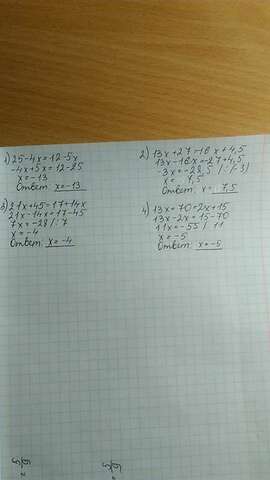 1) 25-4x=12-5x
-4x+5x=12-25
x=-13
Ответ: x=-13
2) 13x+27=16x+4,5
13x-16x=-27+4,5
-3x=-22,5 /:(-3)
x= 7,5
Ответ: x= 7,5
3) 21x+45=17+14x
21x-14x=17-45
7x=-28/:7
x=-4
Ответ: x=-4
4) 13x+70=2x+15
13x-2x=15-70
11x=-55/ 11
x=-5
Ответ: x=-5